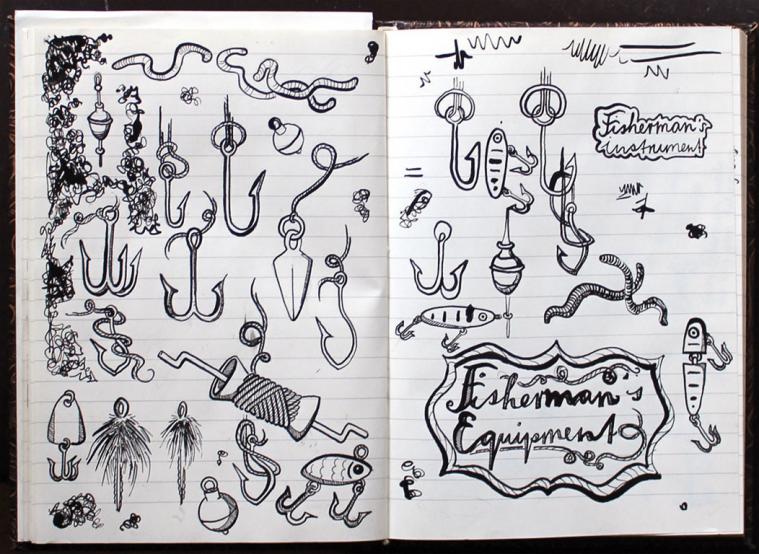 Fisherman's
instrument
Fisherman's
Equipment